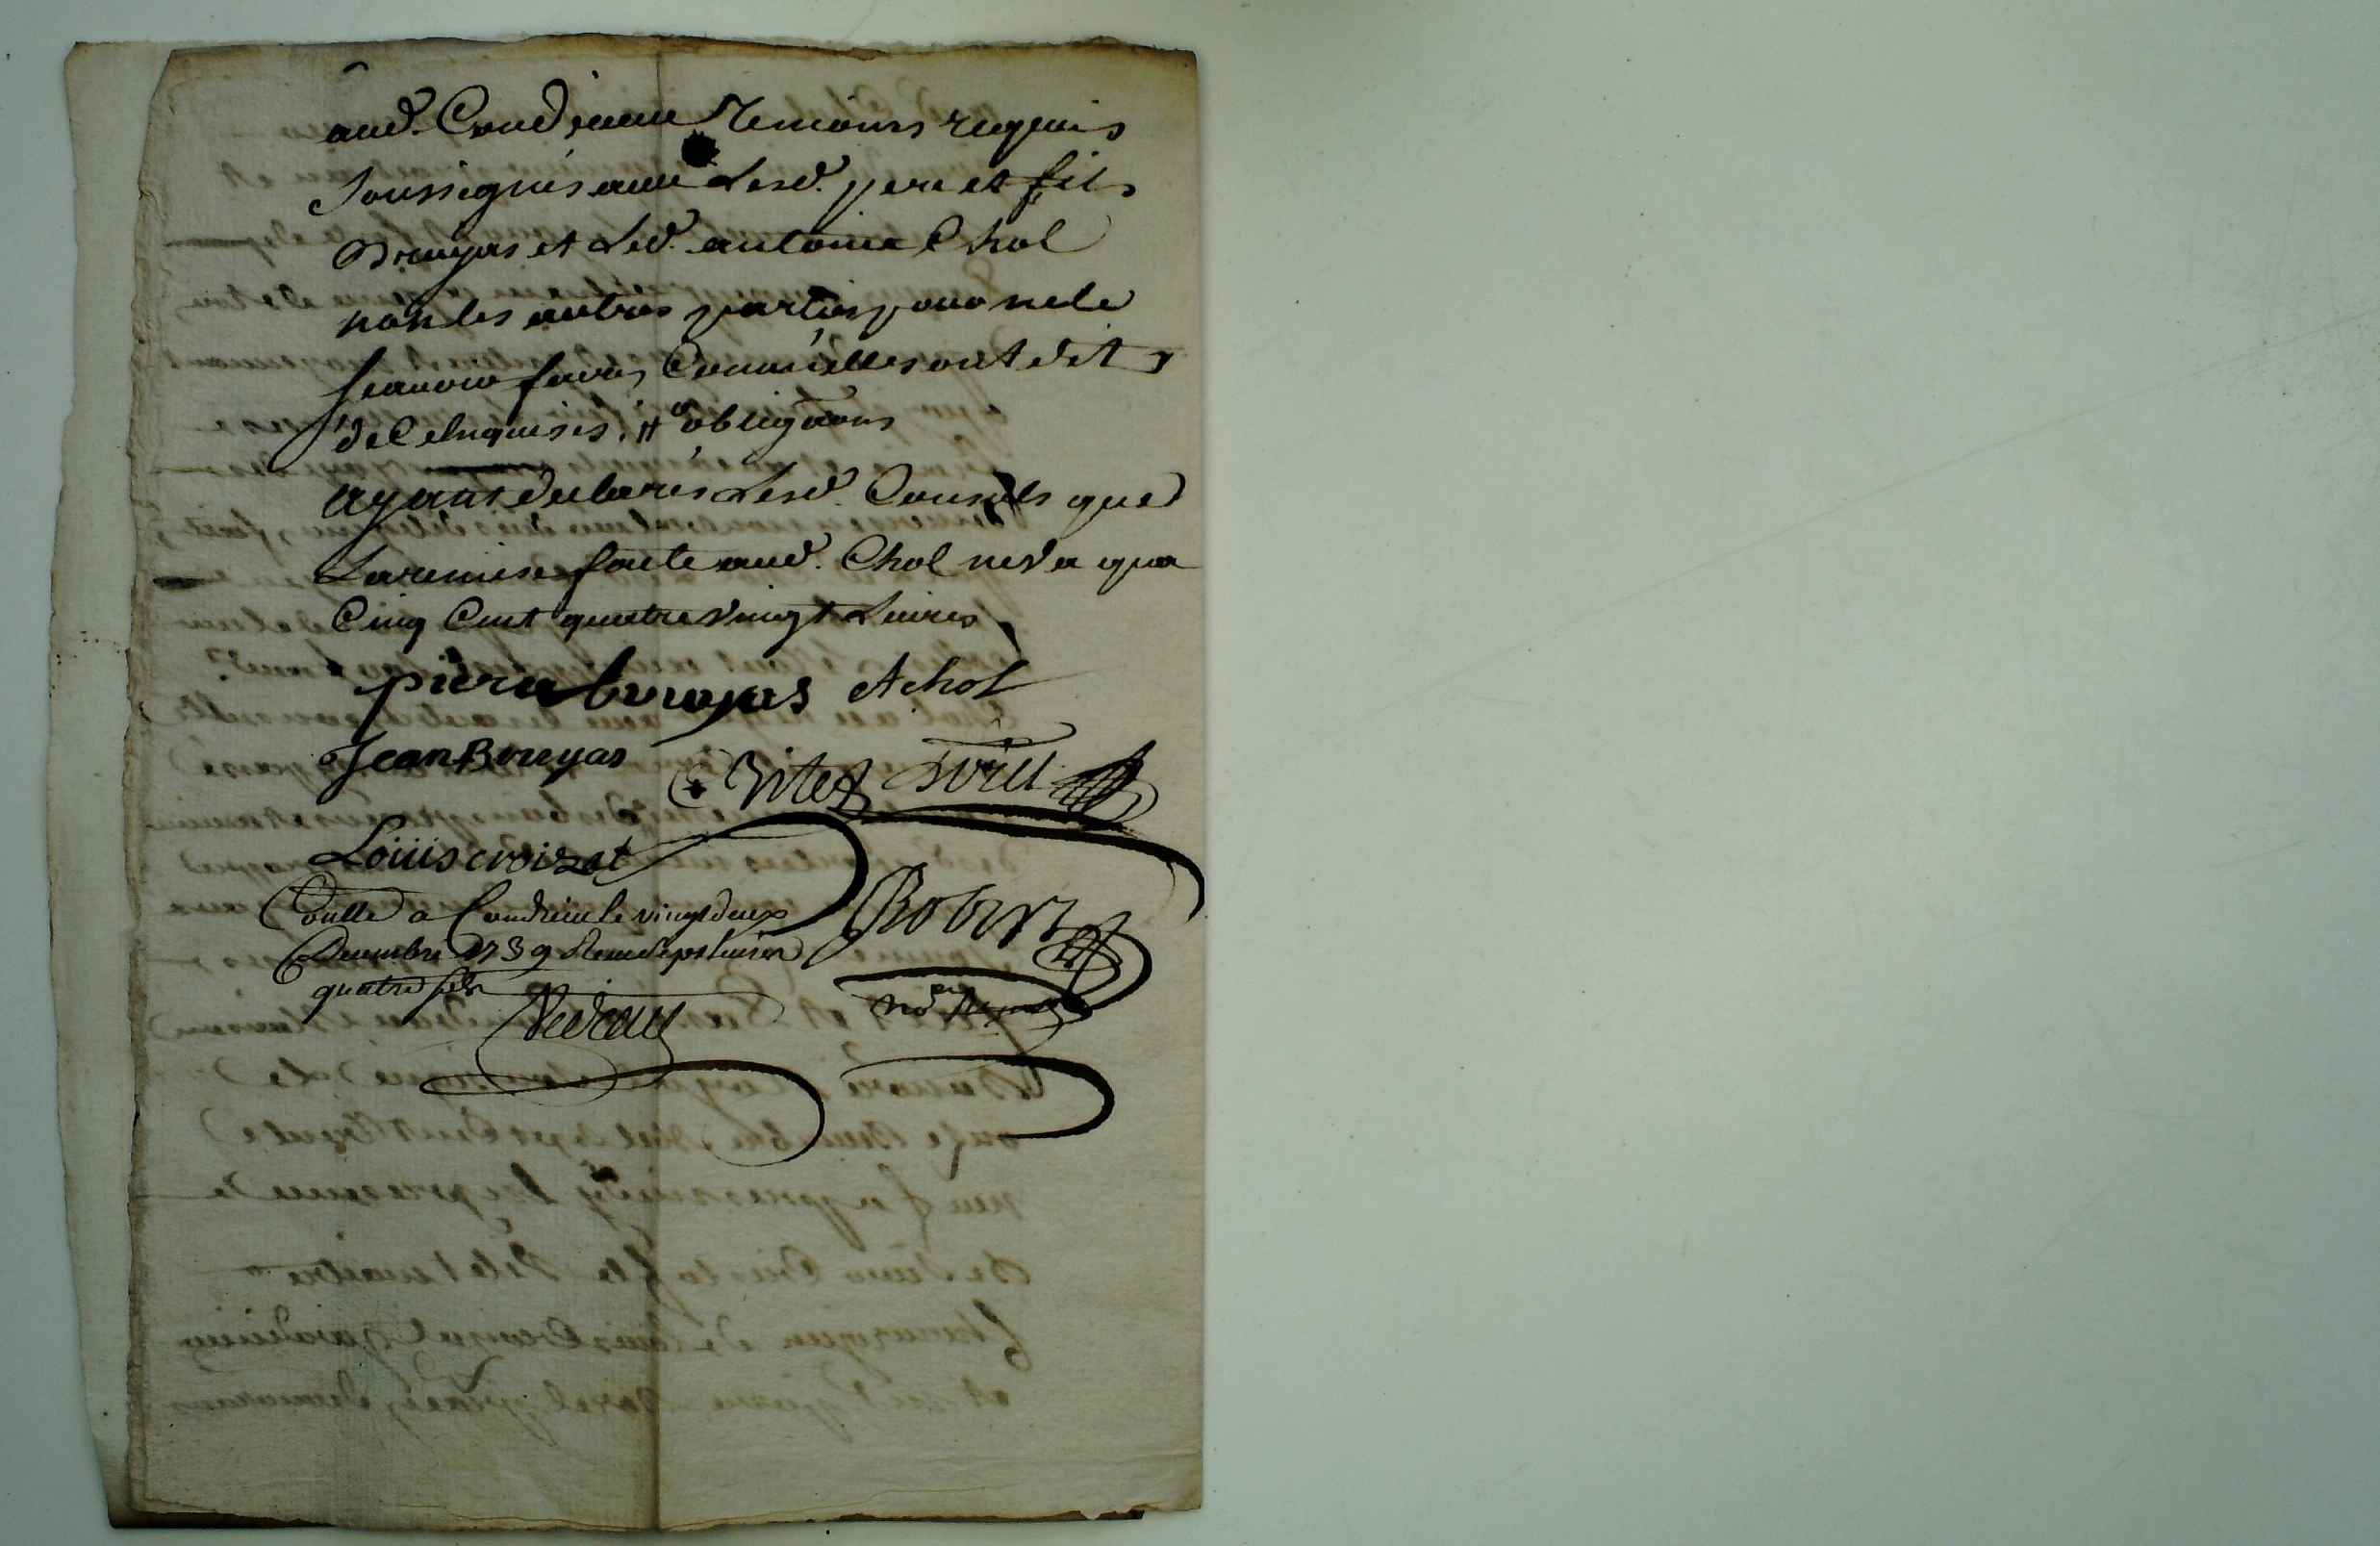 aud. Condrieux Temoins requis
soussignés avec Lesd. pere et fils
Bruyas et Led. antoine Chol
non les autres parties pour ne le
scavoir faire, Comm'elles ont dit
de Ce Enquises, obligaons
ayant declarés Lesd. Consuls que
La remise faite aud. Chol ne va qua
Cinq Cent quatre vingt Livres
piere bruyas AChol
Jean Bruyas
Vitet
Louis croizat
Conllé a Condrieu le vingt deux
Decembre 1739
quatre sols
Robert
no.re Royal